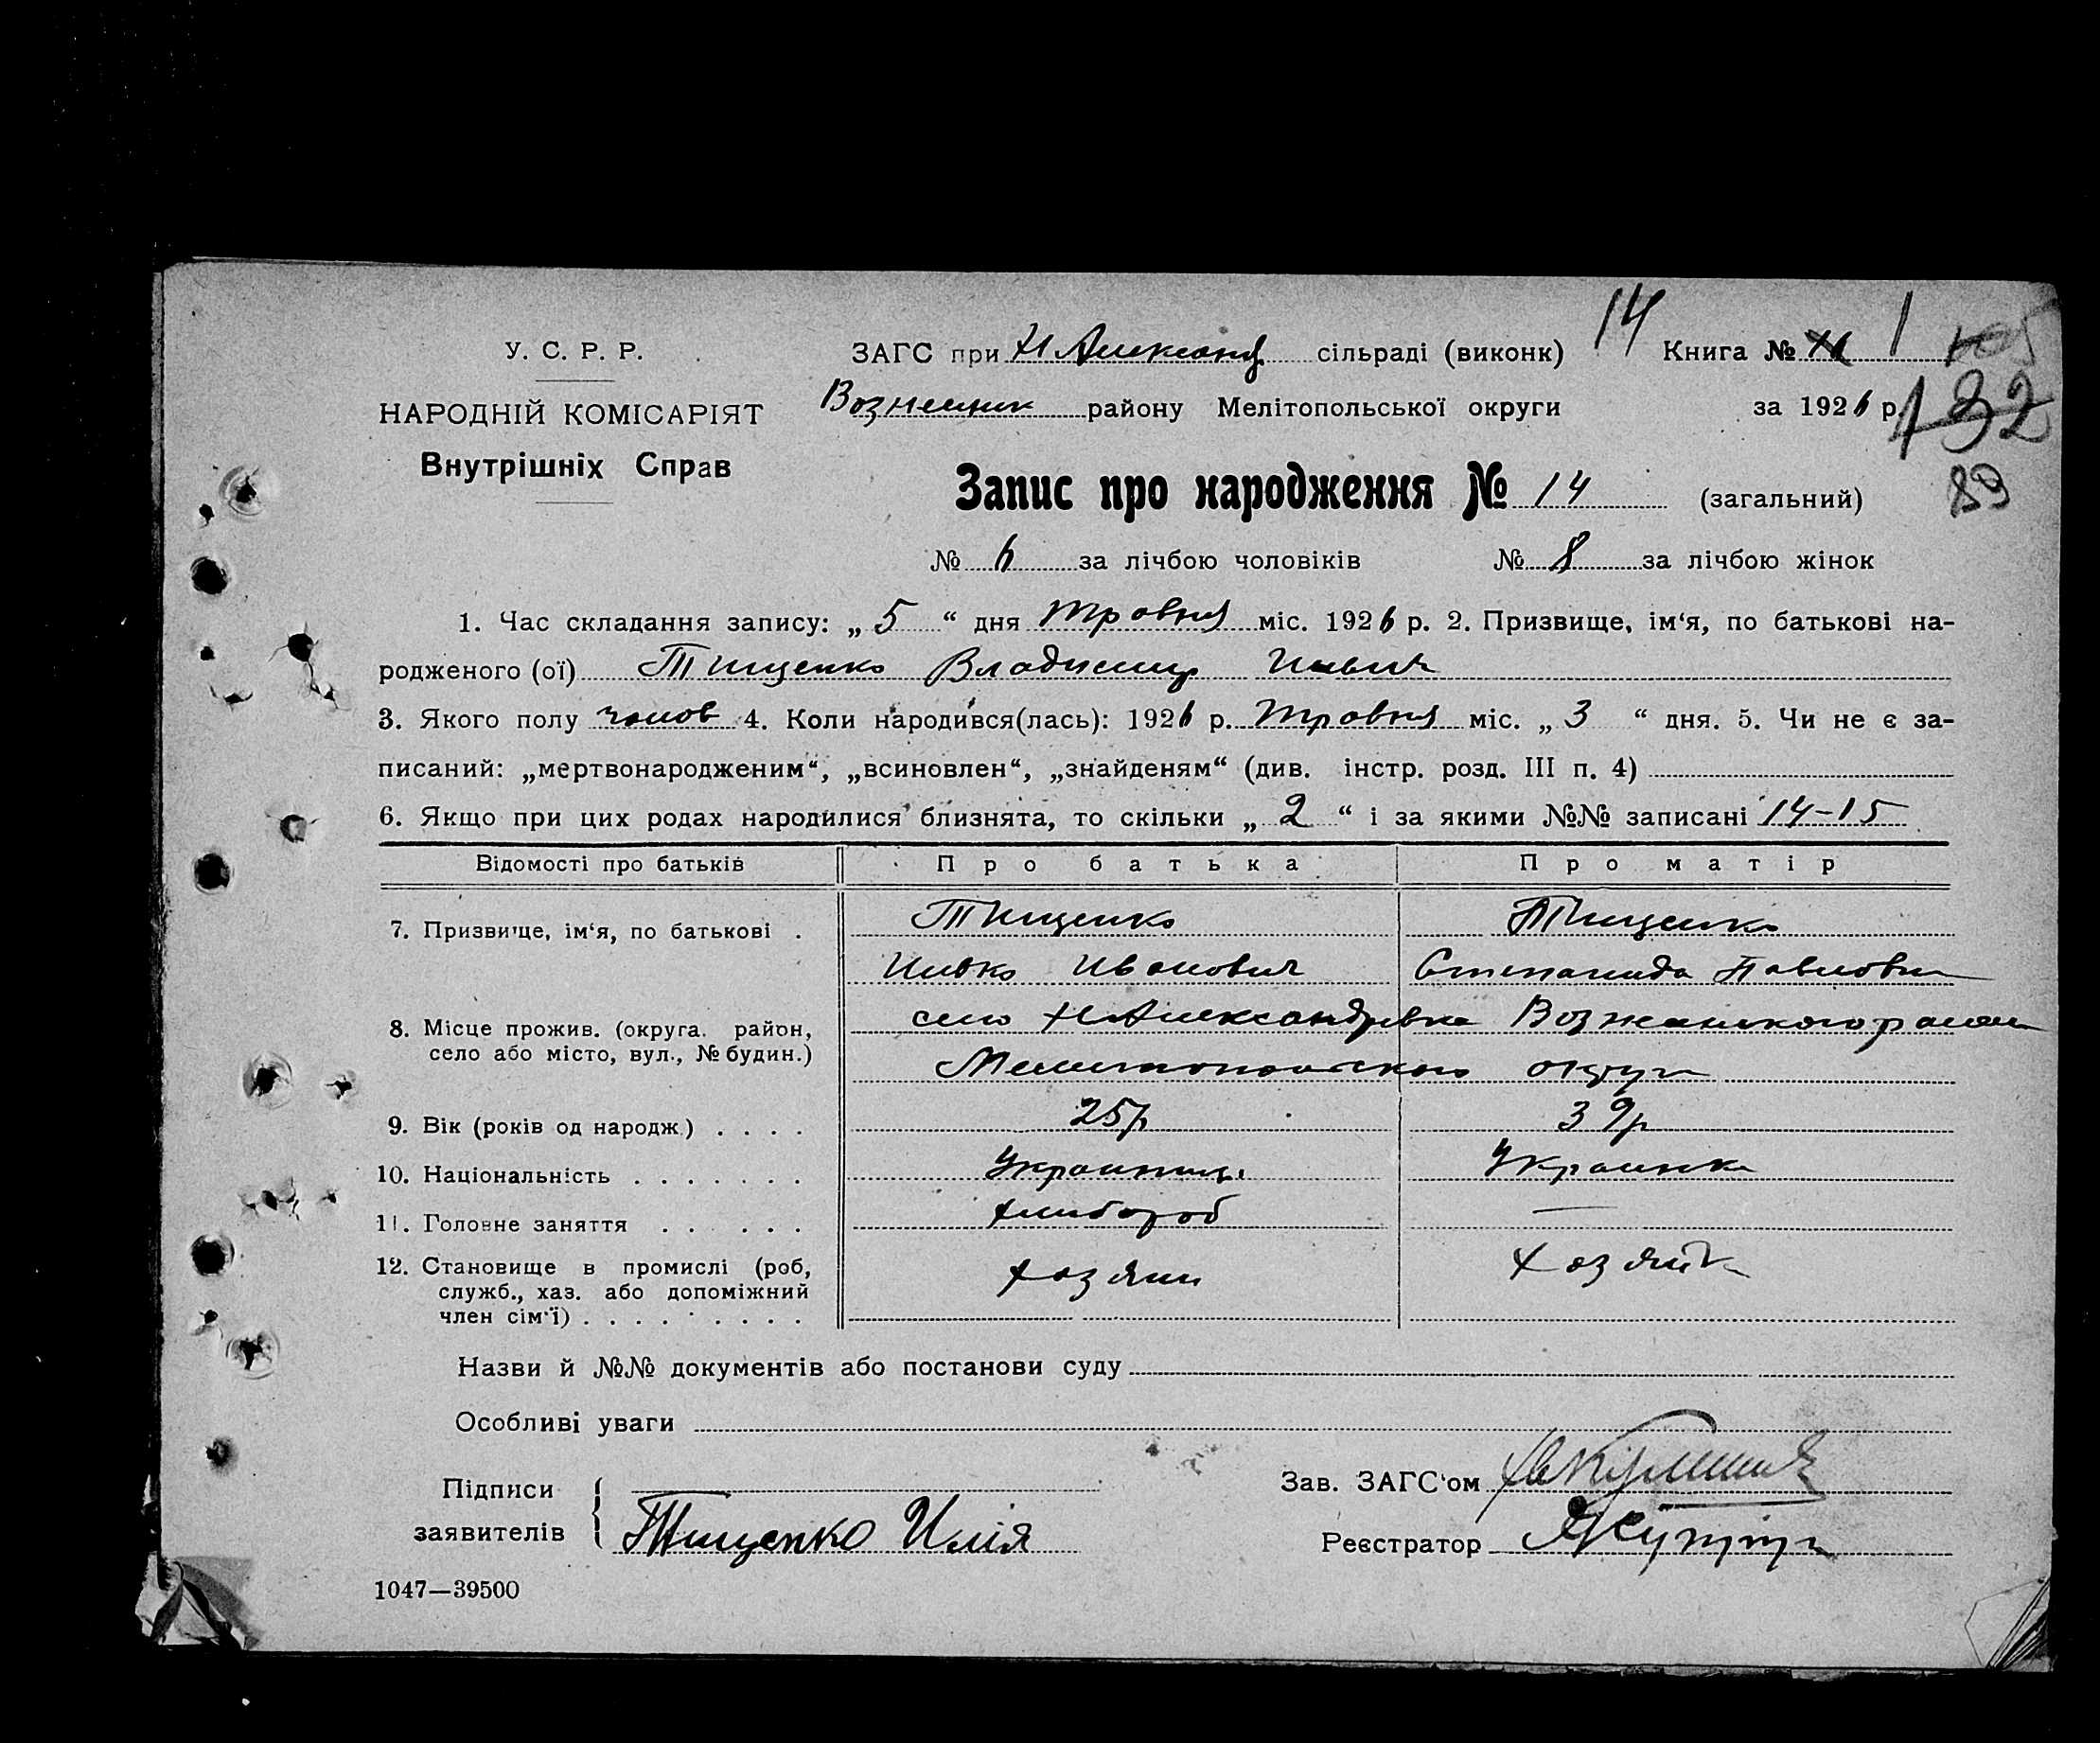 У. С. Р. Р.
НАРОДНІЙ КОМІСАРІЯТ
Внутрішніх Справ
ЗАГС при Н Александ сільраді (виконк) 14 Книга № 1 105
Вознесенск району Мелітопольської округи за 1926 р. 132
Запис про народження № 14 (загальний) 89
№ 6 за лічбою чоловіків № 8 за лічбою жінок
1. Час складання запису: „5“ дня Травня міс. 1926 р. 2. Призвище, ім‘я, по батькові на-
родженого (ої) Тищенко Владимир
3. Якого полу чолов 4. Коли народився(лась): 1926 р. Травня міс. „3“ дня. 5. Чи не є за-
писаний: „мертвонародженим“, „всиновлен“, „знайденям“ (див. інстр. розд. III п. 4)
6. Якщо при цих родах народилися близнята, то скільки „2“ і за якими №№ записані 14-15
Відомості про батьків Про батька Про матір
7. Призвище, ім‘я, по батькові . Тищенко Тищенко
Иванович Степанида Павловна
8. Місце прожив. (округа. район, село Н Александровка Вознесенского района
село або місто, вул., № будин.) Мелитопольского округи
9. Вік (років од народж.) . . . . 25р 39р
10. Національність . . . . . . . Украинец Украинка
11. Головне заняття . . . . . хлибороб —
12. Становище в промислі (роб, хозяин хозяйка
служб., хаз. або допоміжний
член сім‘ї) . . . . . . . . .
Назви й №№ документів або постанови суду
Особливі уваги
Підписи
заявителів Тищенко Илія
Зав. ЗАГС‘ом
Реєстратор
1047—39500